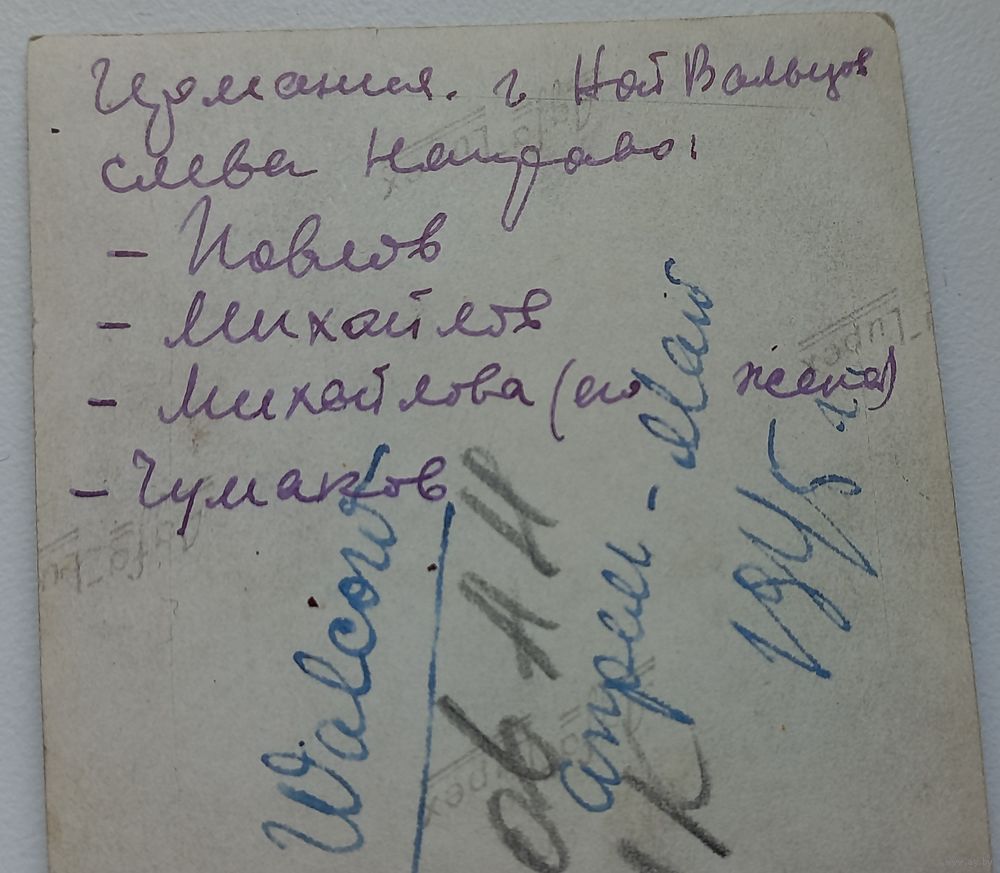 Германия. г. Ной Вальцов
слева направо:
- Павлов
- Михайлов
- Михайлова (его жена)
- Чумаков
Walcow
апрель - Май
1945 г
www.ay.by